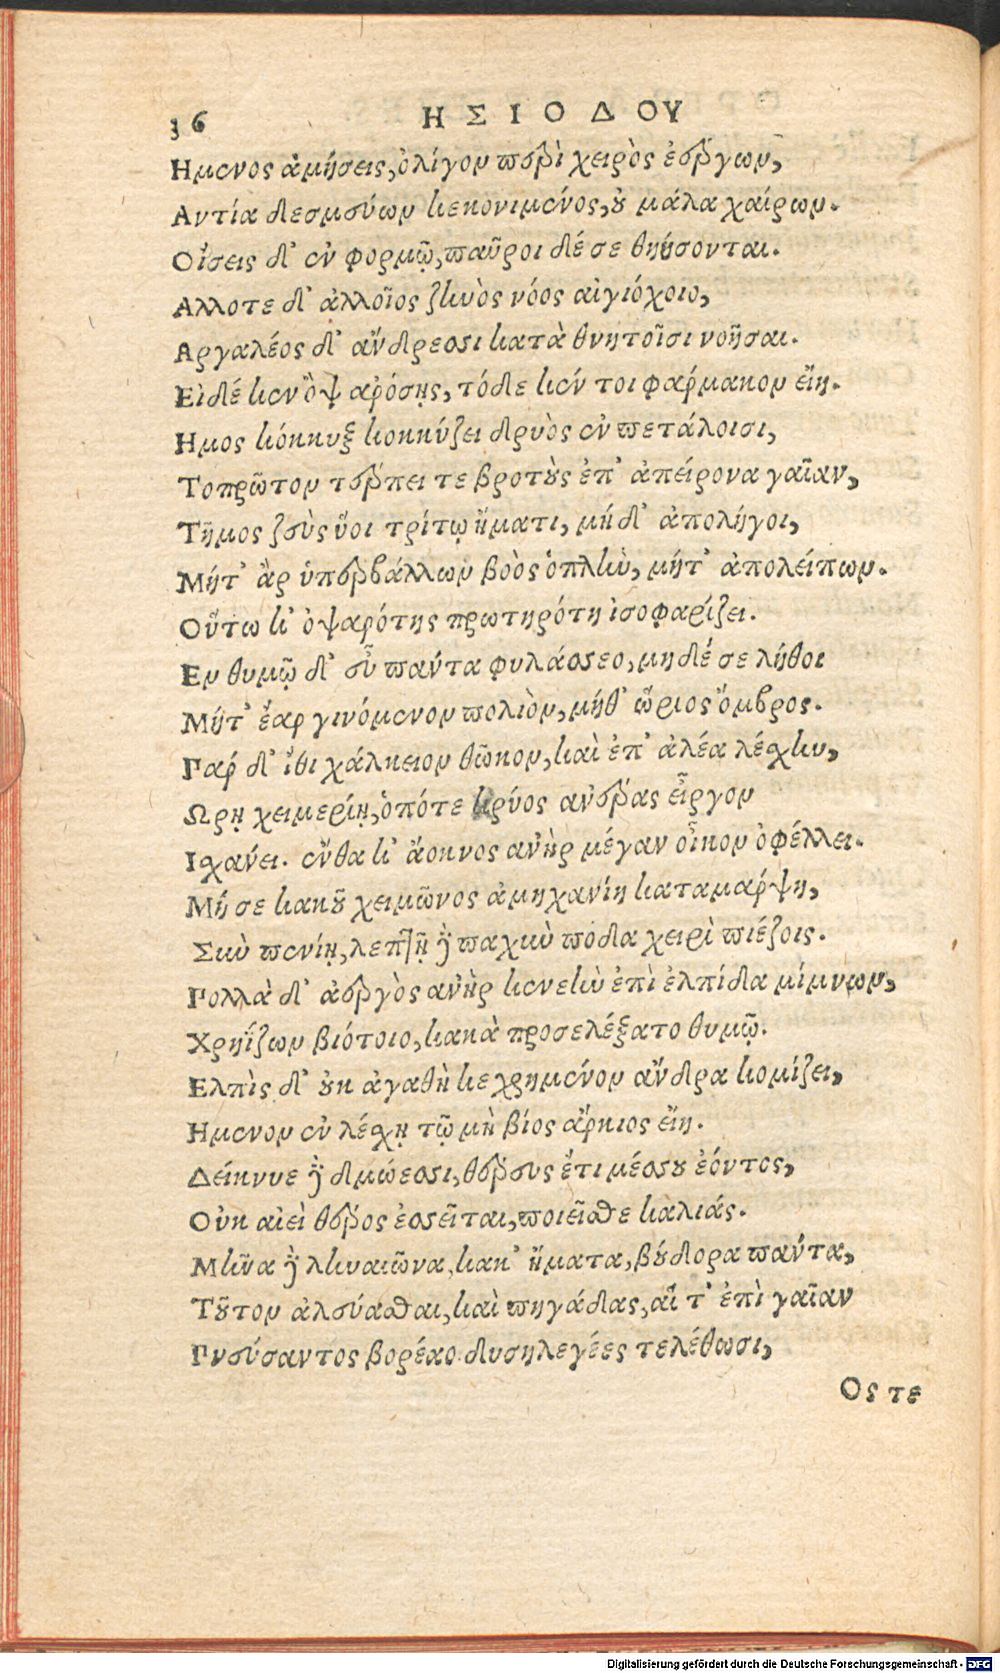 36 ΗΣΙΟΔΟΥ
Ημενος ἀμήσεις, ὀλίγον περὶ χειρὸς ἐέργων,
Αντία δεσμεύων κεκονιμένος, ȣ μάλα χαίρων.
Οἴσεις δ' ἐν φορμῷ, παῦροι δέ σε θηήσονται.
Αλλοτε δ' ἀλλοῖος ζηνὸς νόος αἰγιόχοιο,
Αργαλέος δ' ἄνδρεσσι κατὰ θνητοῖσι νοῆσαι.
Εἰ δέ κεν ὂψ ἀρόσῃς, τόδε κέν τοι φάρμακον εἴη.
Ημος κόκκυξ κοκκύζει δρυὸς ἐν πετάλοισι,
Τοπρῶτον τέρπει τε βροτȣ̀ς ἐπ' ἀπείρονα γαῖαν,
Τῆμος ζεὺς ὕοι τρίτῳ ἤματι, μή δ' ἀπολήγοι,
Μήτ' ἂρ ὑπερβάλλων βοὸς ὁπλὴν, μήτ' ἀπολείπων.
Οὕτω κ' ὀψαρότης πρωτηρότη ἰσοφαρίζει.
Εν θυμῷ δ' εὖ πάντα φυλάσσεο, μηδέ σε λήθοι
Μήτ' ἔαρ γινόμενον πολιὸν, μήθ' ὥριος ὄμβρος.
Γαρ δ' ἴθι χάλκειον θῶκον, καὶ ἐπ' ἀλέα λέσχην,
Ωρῃ χειμερίῃ, ὁπότε κρύος ἀνέρας εἶργον
Ισχάνει. ἔνθα κ' ἄοκνος ἀνὴρ μέγαν οἶκον ὀφέλλει.
Μή σε κακȣ͂ χειμῶνος ἀμηχανίη καταμάρψῃ,
Σὺν πενίῃ, λεπτῇ δὲ παχὺν πόδα χειρὶ πιέζοις.
Γολλὰ δ' ἀεργὸς ἀνὴρ κενεὴν ἐπὶ ἐλπίδα μίμνων,
Χρηΐζων βιότοιο, κακὰ προσελέξατο θυμῷ.
Ελπὶς δ' ȣκ ἀγαθὴ κεχρημένον ἄνδρα κομίζει,
Ημενον ἐν λέσχῃ τῷ μὴ βίος ἄρκιος εἴη.
Δείκνυε δὲ δμώεσσι, θέρευς ἔτι μέσσȣ ἐόντος,
Οὐκ αἰεὶ θέρος ἐσσεῖται, ποιεῖσθε καλιάς.
Μῆνα δὲ ληναιῶνα, κακ' ἤματα, βȣ́δορα πάντα,
Τȣ͂τον ἀλεύασθαι, καὶ πηγάδας, αἵ τ' ἐπὶ γαῖαν
Γνεύσαντος βορέαο δυσηλεγέες τελέθωσι,
Ος τε
Digitalisierung gefördert durch die Deutsche Forschungsgemeinschaft - DFG